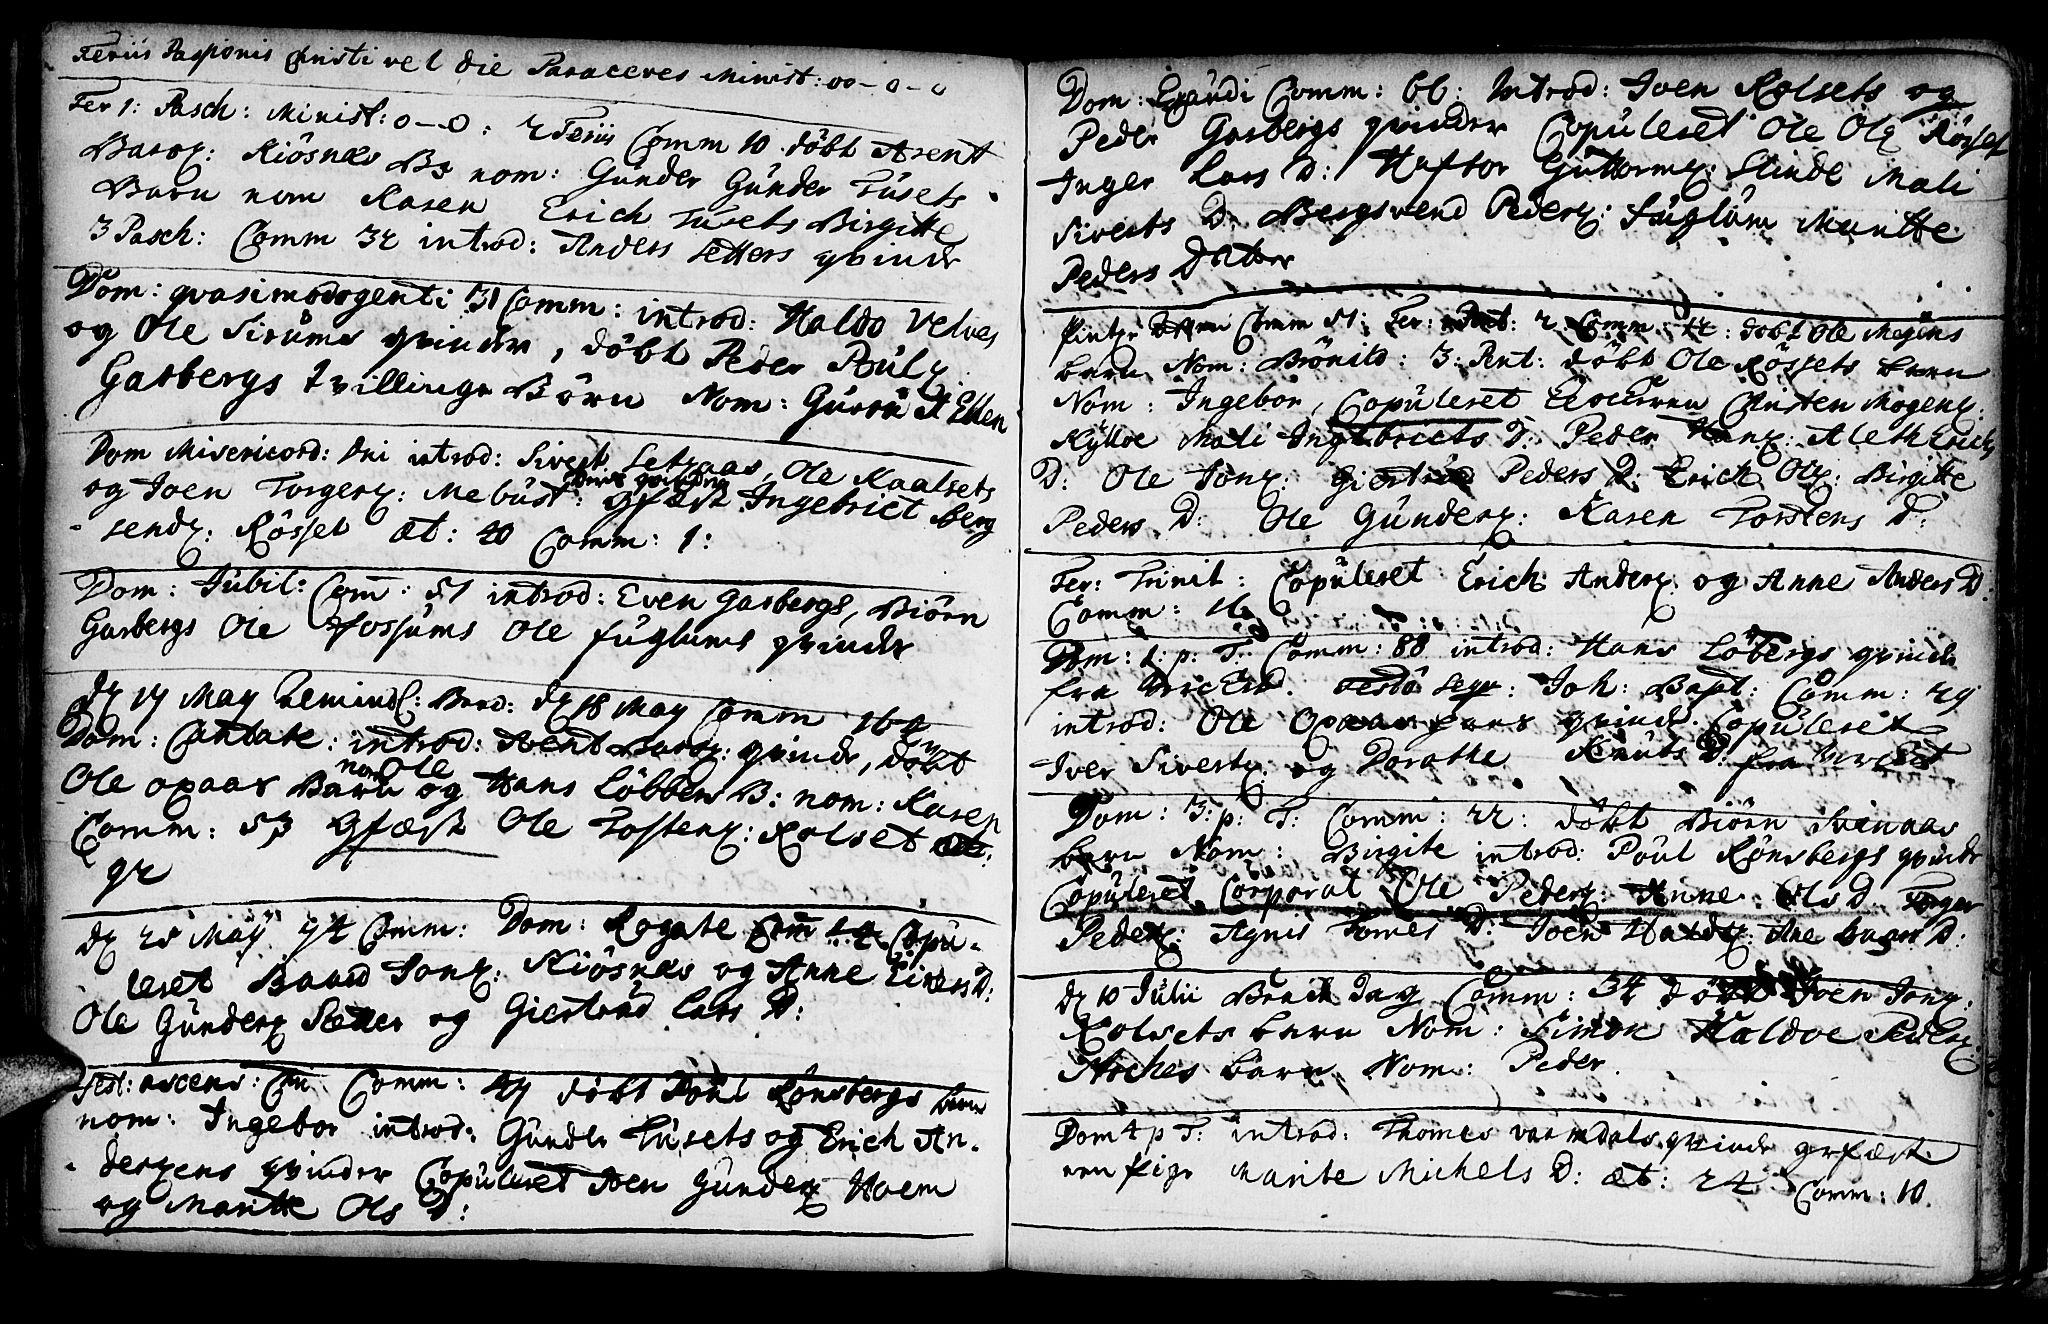 Feriis Passionis Christi vel die Paraceves Minist: 00-0-0
Fer 1: Pasch: Minist: 0-0: 2 Feriis Comm 10 döbt Arent
Barox: Kiösnæs B: nom: Gunder Gunder Tusets
Barn nom Karen Erich Tusets Birgitte
3 Pasch: Comm 32 introd: Anders Setters qvinde
Dom: qvasimodogeniti 31 Comm: introd: Haldo Velves
og Ole Sirums qvinder, döbt Peder Poulx
Garbergs tvillinge Börn Nom: Guru & Ellen
Dom Misericord: Dni introd: Sivert Setsaas, Ole Kaalsets
og Joen Torgerx: Mebust: deres qvinder Gfæst Ingebrict berg
sendx: Rösset æt: 40 Comm: 1:
Dom: Jubil: Com: 51 introd: Even Garbergs, Biörn
Garbergs Ole Fossums Ole fuglums qvinder
dx 17 May Comm dx 18 May Comm 164
Dom: Cantate: introd: Arent Barox: qvinde, döbt
Ole opaas Barn nom Ole og Hans Löbbers B: nom: Karen
Comm: 53 Gfæst Ole Tostenx: Rolset æt:
92
dx 25 May 74 Comm: Dom: Rogate Com 14 Copu-
leret Baard Jonx: Kiösnæs og Anne Eivers D:
Ole Gunderx Sætter og Giertrud Lars D:
Fest: ascens: Chr Comm: 47 döbt Poul Rönsbergs barn
nom: Ingebor introd: Gunder Tusets og Erich An-
dersens qvinder Copuleret Joen Gunderx Hoem
og Marite Ols D:
Dom: Exaudi Comm: 66: Introd: Joen Rolsets og
Peder Garbergs qvinder Copuleret Ole Olx Rösset
Inger Lars D: Haftor Guttormx: Slinde Mali
Siverts D: Bergsvend Pederx: Fuglum Maritte
Peders Datter
Pintze Comm 51: Fer: 2: Comm: 12: döbt Ole Mogens
barn Nom: Brönild: 3: Pent: döbt Ole Rössets barn
Nom: Ingebor, Copuleret Christen Mogenx:
Kylloe Mali Ingebricts D: Peder Hanx: Aleth Erichs
D: Ole Jonx: Giertrud Peders D: Erich Olx: Birgitte
Peders D: Ole Gunderx: Karen Torstens D:
Fer: Trinit: Copuleret Erich Anderx: og Anne Anders D:
Comm: 16
Dom: 1: p: T: Comm: 88 introd: Hans Löbergs qvinde
fra festo seqv: Joh: Bapt: Comm: 29
introd: Ole Opaas qvinde Copuleret
Iver Sivertx: og Dorathe Knuts D: fra
Dom: 3: p: T: Comm: 22: döbt Biörn Svinaas
barn Nom: Birgite introd: Poul Rönsbergs qvinde
Copuleret Corporal Ole Pederx: Anne Ols D: Torger
Pederx: Agnis Tomes D: Joen Ane D:
dx 10 Julii Brach Dag Comm: 34 döbt Joen Jonx:
Rolsets barn Nom: Simon Haldoe Pederx
Moches barn Nom: Peder.
Dom 4 p T: introd: Thomes qvinde grfæst
een pige Marite Michels D: æt: 24 Comm: 10.